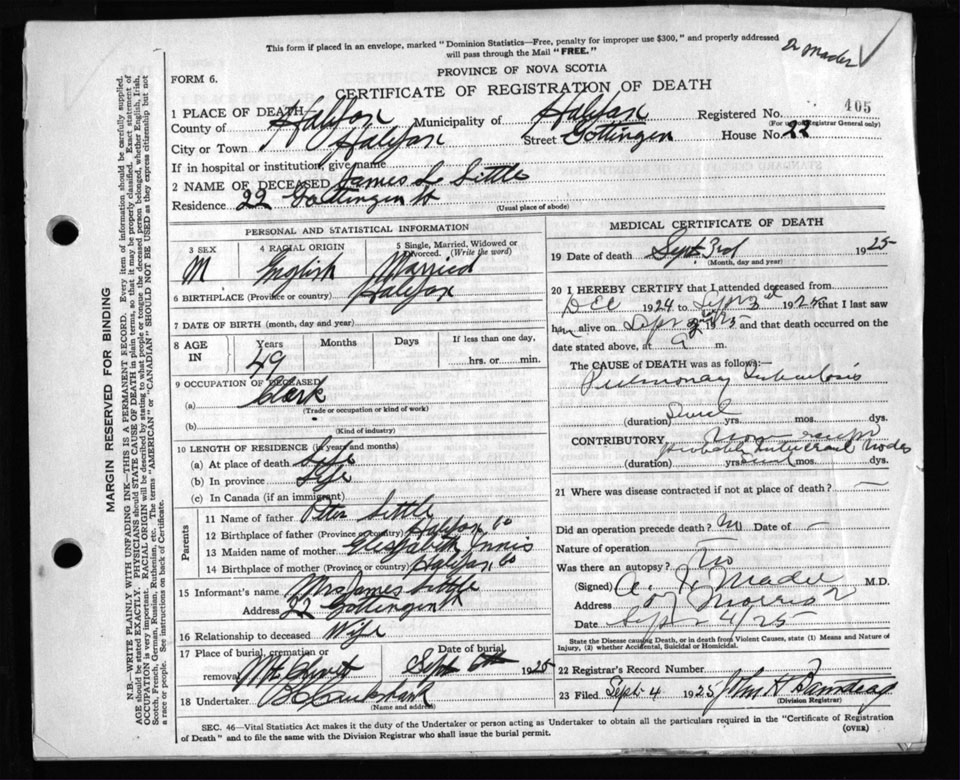 This form if placed in an envelope, marked "Dominion Statistics—Free, penalty for improper use $300," and properly addressed
will pass through the Mail "FREE."
Dr Mader
PROVINCE OF NOVA SCOTIA
FORM 6.
CERTIFICATE OF REGISTRATION OF DEATH
1 PLACE OF DEATH
County of Halifax Municipality of Halifax Registered No. 405
(For use of Registrar General only)
City or Town Halifax Street Gottingen House No. 22
If in hospital or institution, give name
2 NAME OF DECEASED James L Little
Residence 22 Gottingen St
(Usual place of abode)
PERSONAL AND STATISTICAL INFORMATION
3 SEX 4 RACIAL ORIGIN 5 Single, Married, Widowed or Divorced. (Write the word)
M English Married
6 BIRTHPLACE (Province or country) Halifax
7 DATE OF BIRTH (month, day and year)
8 AGE IN Years Months Days If less than one day,
49 hrs. or min.
9 OCCUPATION OF DECEASED
(a) Clerk
(Trade or occupation or kind of work)
(b)
(Kind of industry)
10 LENGTH OF RESIDENCE (in years and months)
(a) At place of death Life
(b) In province Life
(c) In Canada (if an immigrant)
Parents
11 Name of father Peter Little
12 Birthplace of father (Province or country) Halifax Co
13 Maiden name of mother Elizabeth Innis
14 Birthplace of mother (Province or country) Halifax Co
15 Informant's name Mrs James Little
Address 22 Gottingen St
16 Relationship to deceased Wife
17 Place of burial, cremation or removal Date of burial
Sept 6th 1925
18 Undertaker
(Name and address)
MEDICAL CERTIFICATE OF DEATH
19 Date of death Sept 3rd 1925
(Month, day and year)
20 I HEREBY CERTIFY that I attended deceased from
Dec 1924 to Sept 3rd 1925 that I last saw
him alive on Sept 2nd 1925 and that death occurred on the
date stated above, at 9 m.
The CAUSE OF DEATH was as follows:—
Pulmonary Tuberculosis
(duration) yrs. mos. dys.
CONTRIBUTORY
Probably Nodes
(duration) yrs. mos. dys.
21 Where was disease contracted if not at place of death? —
Did an operation precede death? No Date of —
Nature of operation —
Was there an autopsy? No
(Signed) A. I. Mader M.D.
Address Morris
Date Sept 4/25
State the Disease causing Death, or in death from Violent Causes, state (1) Means and Nature of
Injury, (2) whether Accidental, Suicidal or Homicidal.
22 Registrar's Record Number
23 Filed Sept 4 1925 John H
(Division Registrar)
SEC. 46—Vital Statistics Act makes it the duty of the Undertaker or person acting as Undertaker to obtain all the particulars required in the "Certificate of Registration
of Death" and to file the same with the Division Registrar who shall issue the burial permit.
(OVER)
MARGIN RESERVED FOR BINDING
N.B.—WRITE PLAINLY WITH UNFADING INK—THIS IS A PERMANENT RECORD. Every item of information should be carefully supplied.
AGE should be stated EXACTLY. PHYSICIANS should STATE CAUSE OF DEATH in plain terms, so that it may be properly classified. Exact statement of
OCCUPATION is very important. RACIAL ORIGIN will be described by stating to what people or tongue the deceased person belonged, whether English, Irish,
Scotch, French, German, Russian, Ruthenian, etc. The terms "AMERICAN" or "CANADIAN" SHOULD NOT BE USED as they express citizenship but not
a race or people. See instructions on back of Certificate.